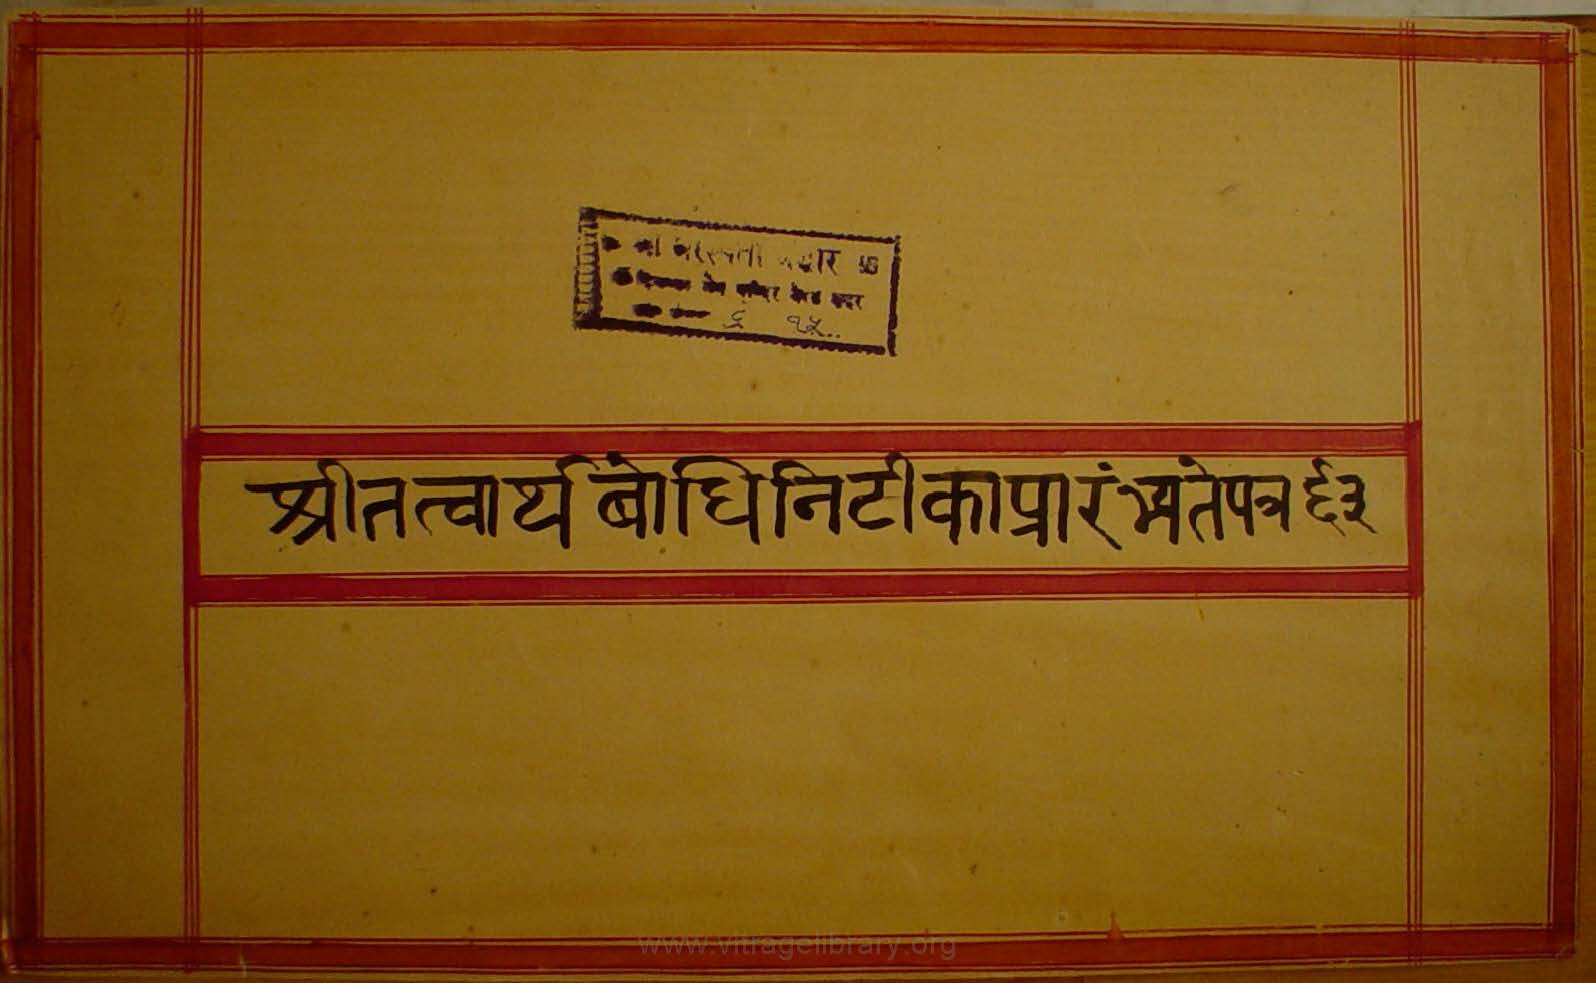 सरस्वती भंडार 卐
दिगम्बर जैन मन्दिर
६ १५..
श्रीतत्त्वार्थबोधिनिटीकाप्रारंभ्यतेपत्र६३
www.vitragelibrary.org